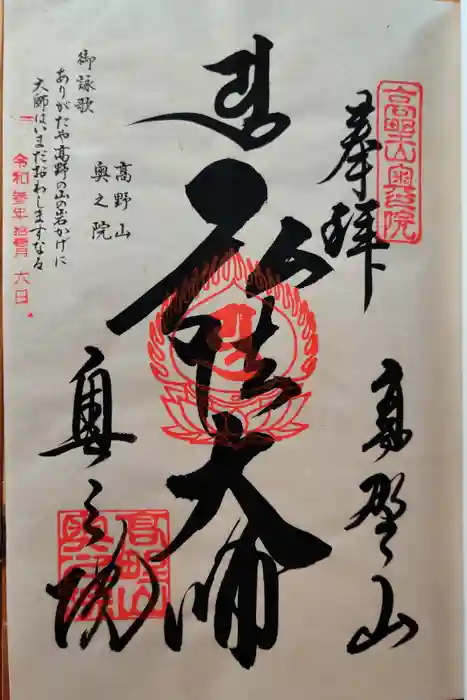 高野山奥之院
奉拝
高野山
弘法大師
奥之院
高野山奥之院
御詠歌
ありがたや高野の山の岩かげに
大師はいまだおわしますなる
高野山
奥之院
令和参年拾壱月六日